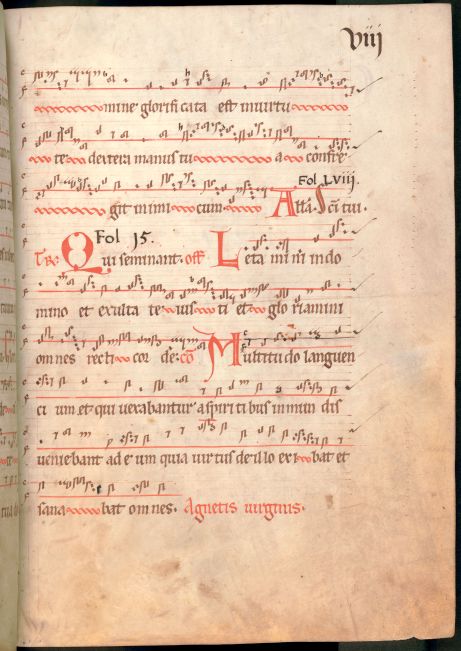 viij
mine glorifi cata est in virtu
te dextera manus tu a confre
Fol LVIII.
git inimi cum Alla. Sci tui.
Fol 15.
Tro Qui seminant. off Leta mi ni in do
mino et exulta te ius ti et glo riamini
omnes recti cor de: co Multitudo languen
ci um et qui uexabantur a spiri tibus inmun dis
ueniebant ad e um quia uirtus de illo exi bat et
sana bat omnes. Agnetis uirginis.